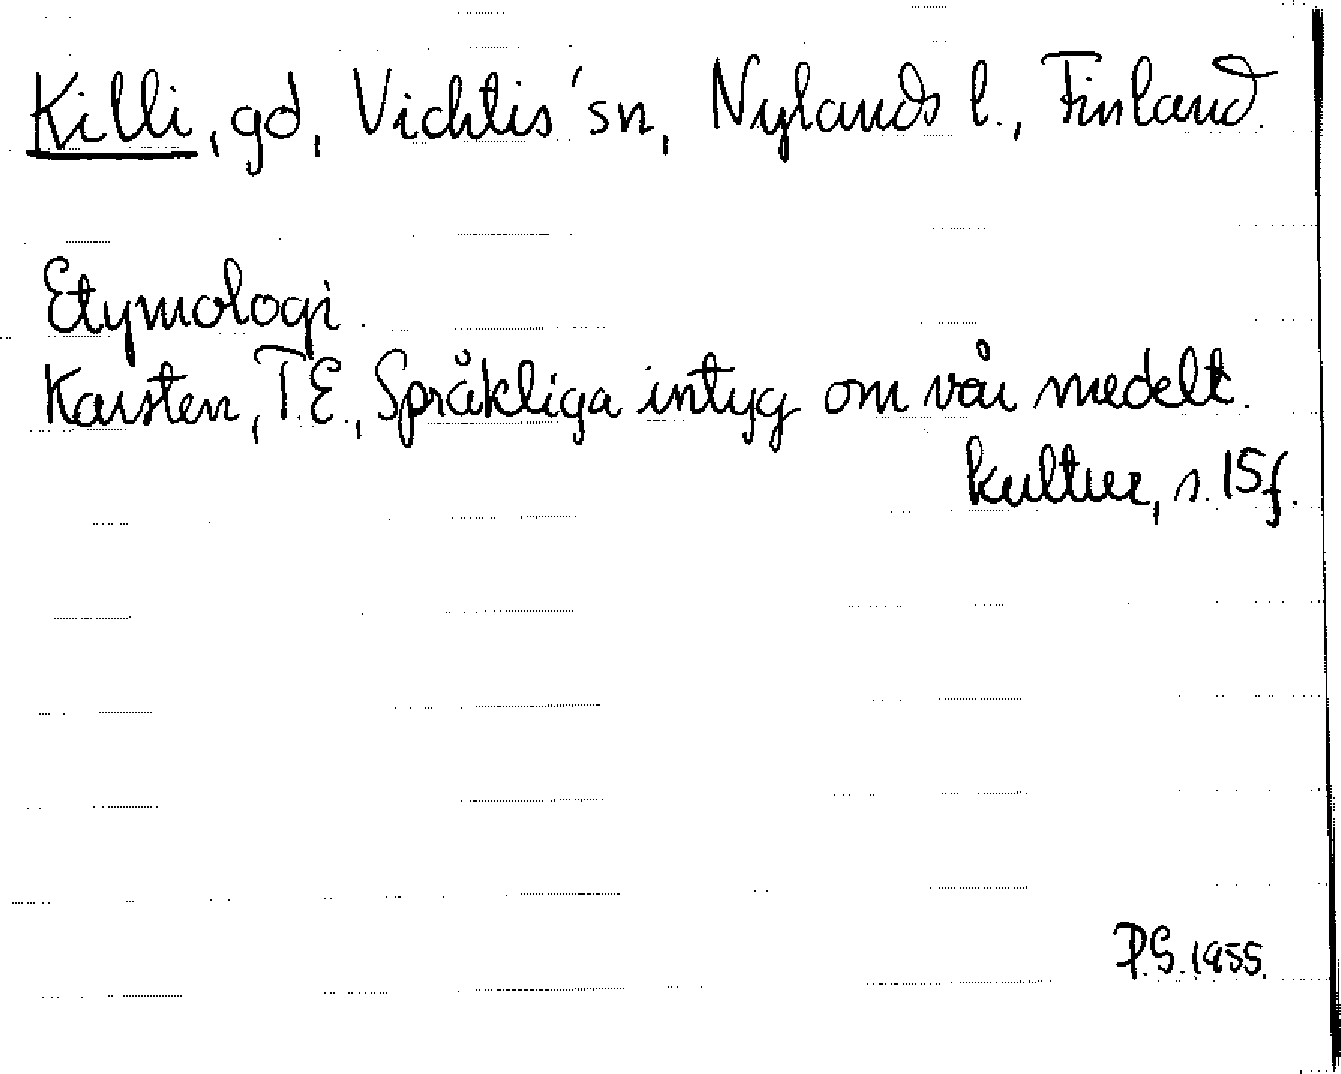 Killi, gd, Vichtis' sn, Nylands l., Finland.
Etymologi
Karsten, T.E., Språkliga intyg om vår medelt.
kultur, s. 15f.
P.S. 1955.